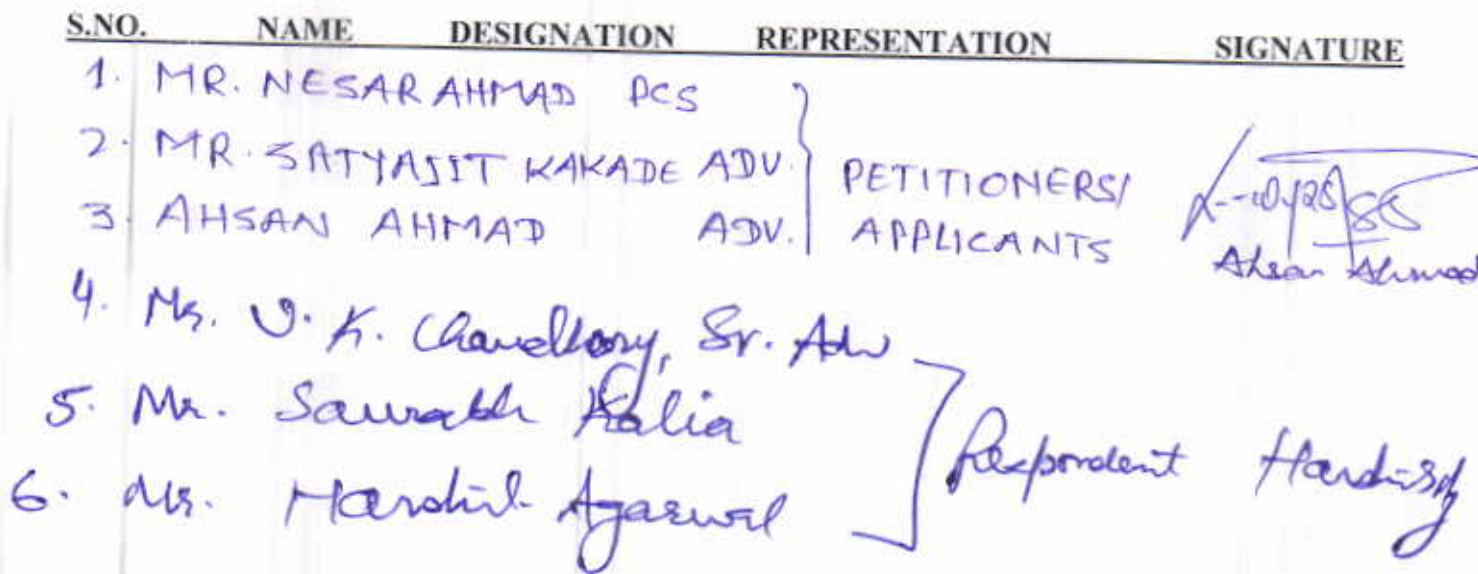 S.NO. NAME DESIGNATION REPRESENTATION SIGNATURE
1. MR. NESAR AHMAD PCS
2. MR. SATYAJIT KAKADE ADV. PETITIONERS/
3. AHSAN AHMAD ADV. APPLICANTS
Ahsan Ahmad
4. Mr. V. K. Chaudhary, Sr. Adv
5. Mr. Saurabh Kalia
6. Mr. Agarwal Respondent